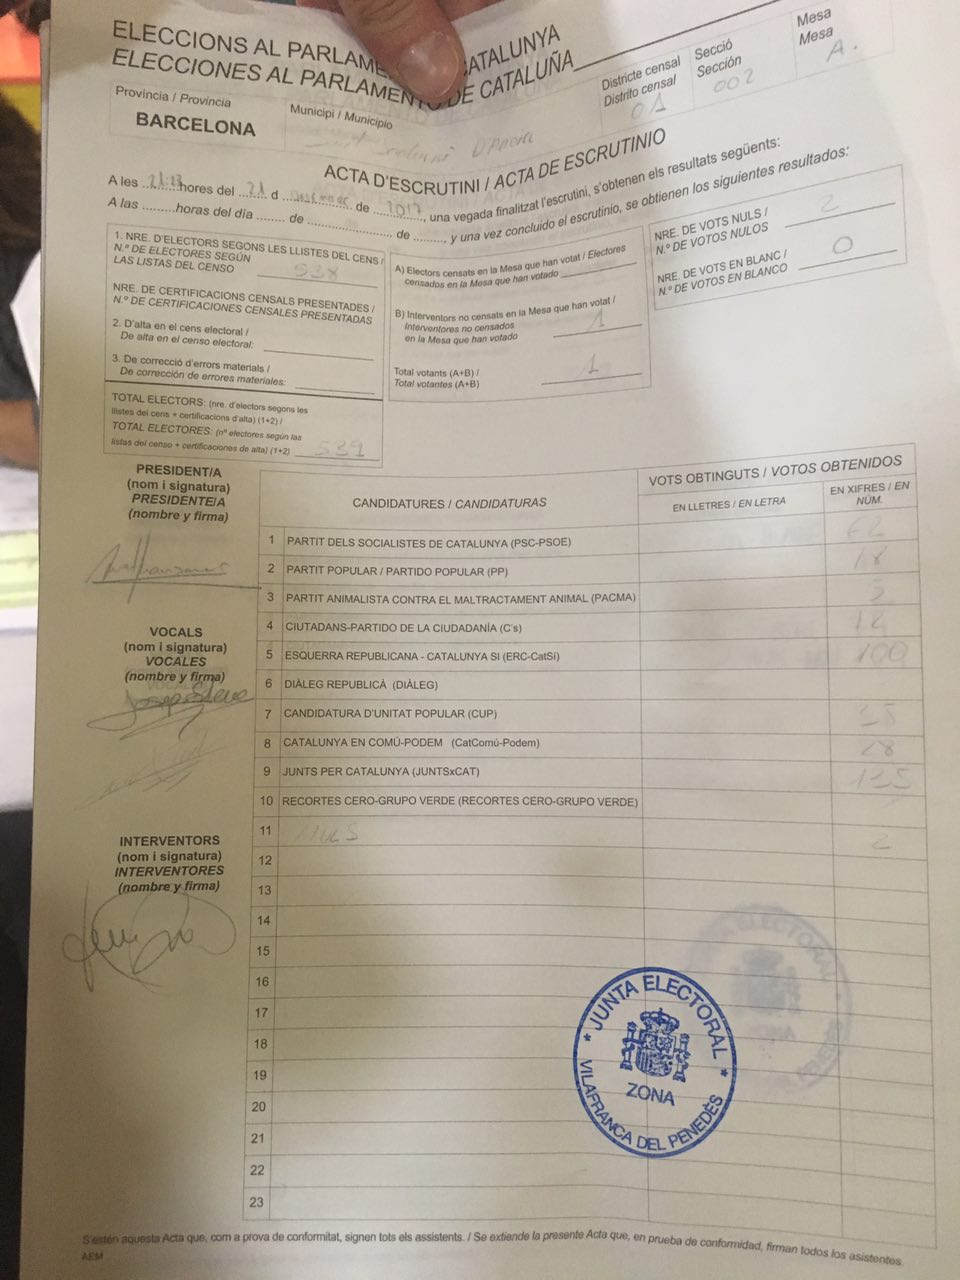 ELECCIONS AL PARLAME CATALUNYA
ELECCIONES AL PARLAMENTO DE CATALUÑA
Província / Provincia
BARCELONA
Municipi / Municipio
Districte censal
Distrito censal
01
Secció
Sección
002
Mesa
Mesa
A.
ACTA D'ESCRUTINI / ACTA DE ESCRUTINIO
A les 21:13 hores del 21 d de 2017, una vegada finalitzat l'escrutini, s'obtenen els resultats següents:
A las .........horas del día ........ de .......................... de ........., y una vez concluido el escrutinio, se obtienen los siguientes resultados:
1. NRE. D'ELECTORS SEGONS LES LLISTES DEL CENS /
N.º DE ELECTORES SEGÚN
LAS LISTAS DEL CENSO
NRE. DE CERTIFICACIONS CENSALS PRESENTADES /
N.º DE CERTIFICACIONES CENSALES PRESENTADAS
2. D'alta en el cens electoral /
De alta en el censo electoral:
3. De correcció d'errors materials /
De corrección de errores materiales:
TOTAL ELECTORS: (nre. d'electors segons les
llistes del cens + certificacions d'alta) (1+2) /
TOTAL ELECTORES: (nº electores según las
listas del censo + certificaciones de alta) (1+2) 539
A) Electors censats en la Mesa que han votat / Electores
censados en la Mesa que han votado
B) Interventors no censats en la Mesa que han votat /
Interventores no censados
en la Mesa que han votado 1
Total votants (A+B) /
Total votantes (A+B) 1
NRE. DE VOTS NULS /
N.º DE VOTOS NULOS 2
NRE. DE VOTS EN BLANC /
N.º DE VOTOS EN BLANCO 0
PRESIDENT/A
(nom i signatura)
PRESIDENTE/A
(nombre y firma)
VOCALS
(nom i signatura)
VOCALES
(nombre y firma)
INTERVENTORS
(nom i signatura)
INTERVENTORES
(nombre y firma)
CANDIDATURES / CANDIDATURAS
VOTS OBTINGUTS / VOTOS OBTENIDOS
EN LLETRES / EN LETRA
EN XIFRES / EN NÚM.
1 PARTIT DELS SOCIALISTES DE CATALUNYA (PSC-PSOE) 62
2 PARTIT POPULAR / PARTIDO POPULAR (PP) 18
3 PARTIT ANIMALISTA CONTRA EL MALTRACTAMENT ANIMAL (PACMA)
4 CIUTADANS-PARTIDO DE LA CIUDADANÍA (C's)
5 ESQUERRA REPUBLICANA - CATALUNYA SI (ERC-CatSí) 100
6 DIÀLEG REPUBLICÀ (DIÀLEG)
7 CANDIDATURA D'UNITAT POPULAR (CUP)
8 CATALUNYA EN COMÚ-PODEM (CatComú-Podem) 28
9 JUNTS PER CATALUNYA (JUNTSxCAT)
10 RECORTES CERO-GRUPO VERDE (RECORTES CERO-GRUPO VERDE)
11 NULS 2
12
13
14
15
16
17
18
19
20
21
22
23
JUNTA ELECTORAL
ZONA
VILAFRANCA DEL PENEDÈS
S'estén aquesta Acta que, com a prova de conformitat, signen tots els assistents. / Se extiende la presente Acta que, en prueba de conformidad, firman todos los asistentes.
AEM